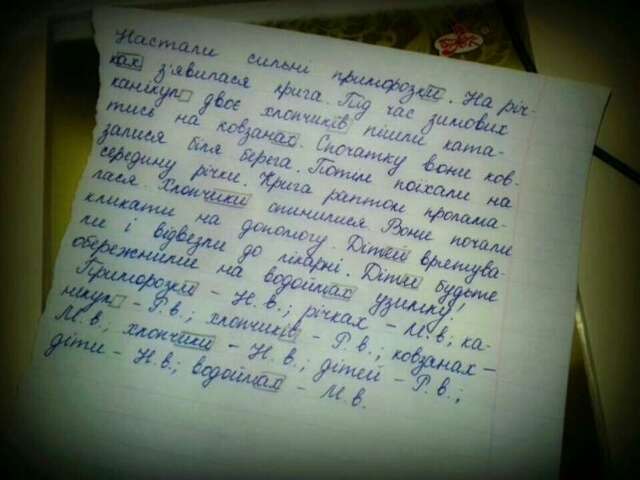 Настали сильні приморозки. На річ-
ках з'явилася крига. Під час зимових
канікул двоє хлопчиків пішли ката-
тись на ковзанах. Спочатку вони ков-
залися біля берега. Потім поїхали на
середину річки. Крига раптом пролама-
лася. Хлопчики опинилися. Вони почали
кликати на допомогу. Дітей врятува-
ли і відвезли до лікарні. Діти будьте
обережними на водоймах узимку!
Приморозки - Н.в.; річках - М.в; ка-
нікул - Р.в.; хлопчиків - Р.в.; ковзанах -
М.в; хлопчики - Н.в.; дітей - Р.в.;
діти - Н.в.; водоймах - М.в.